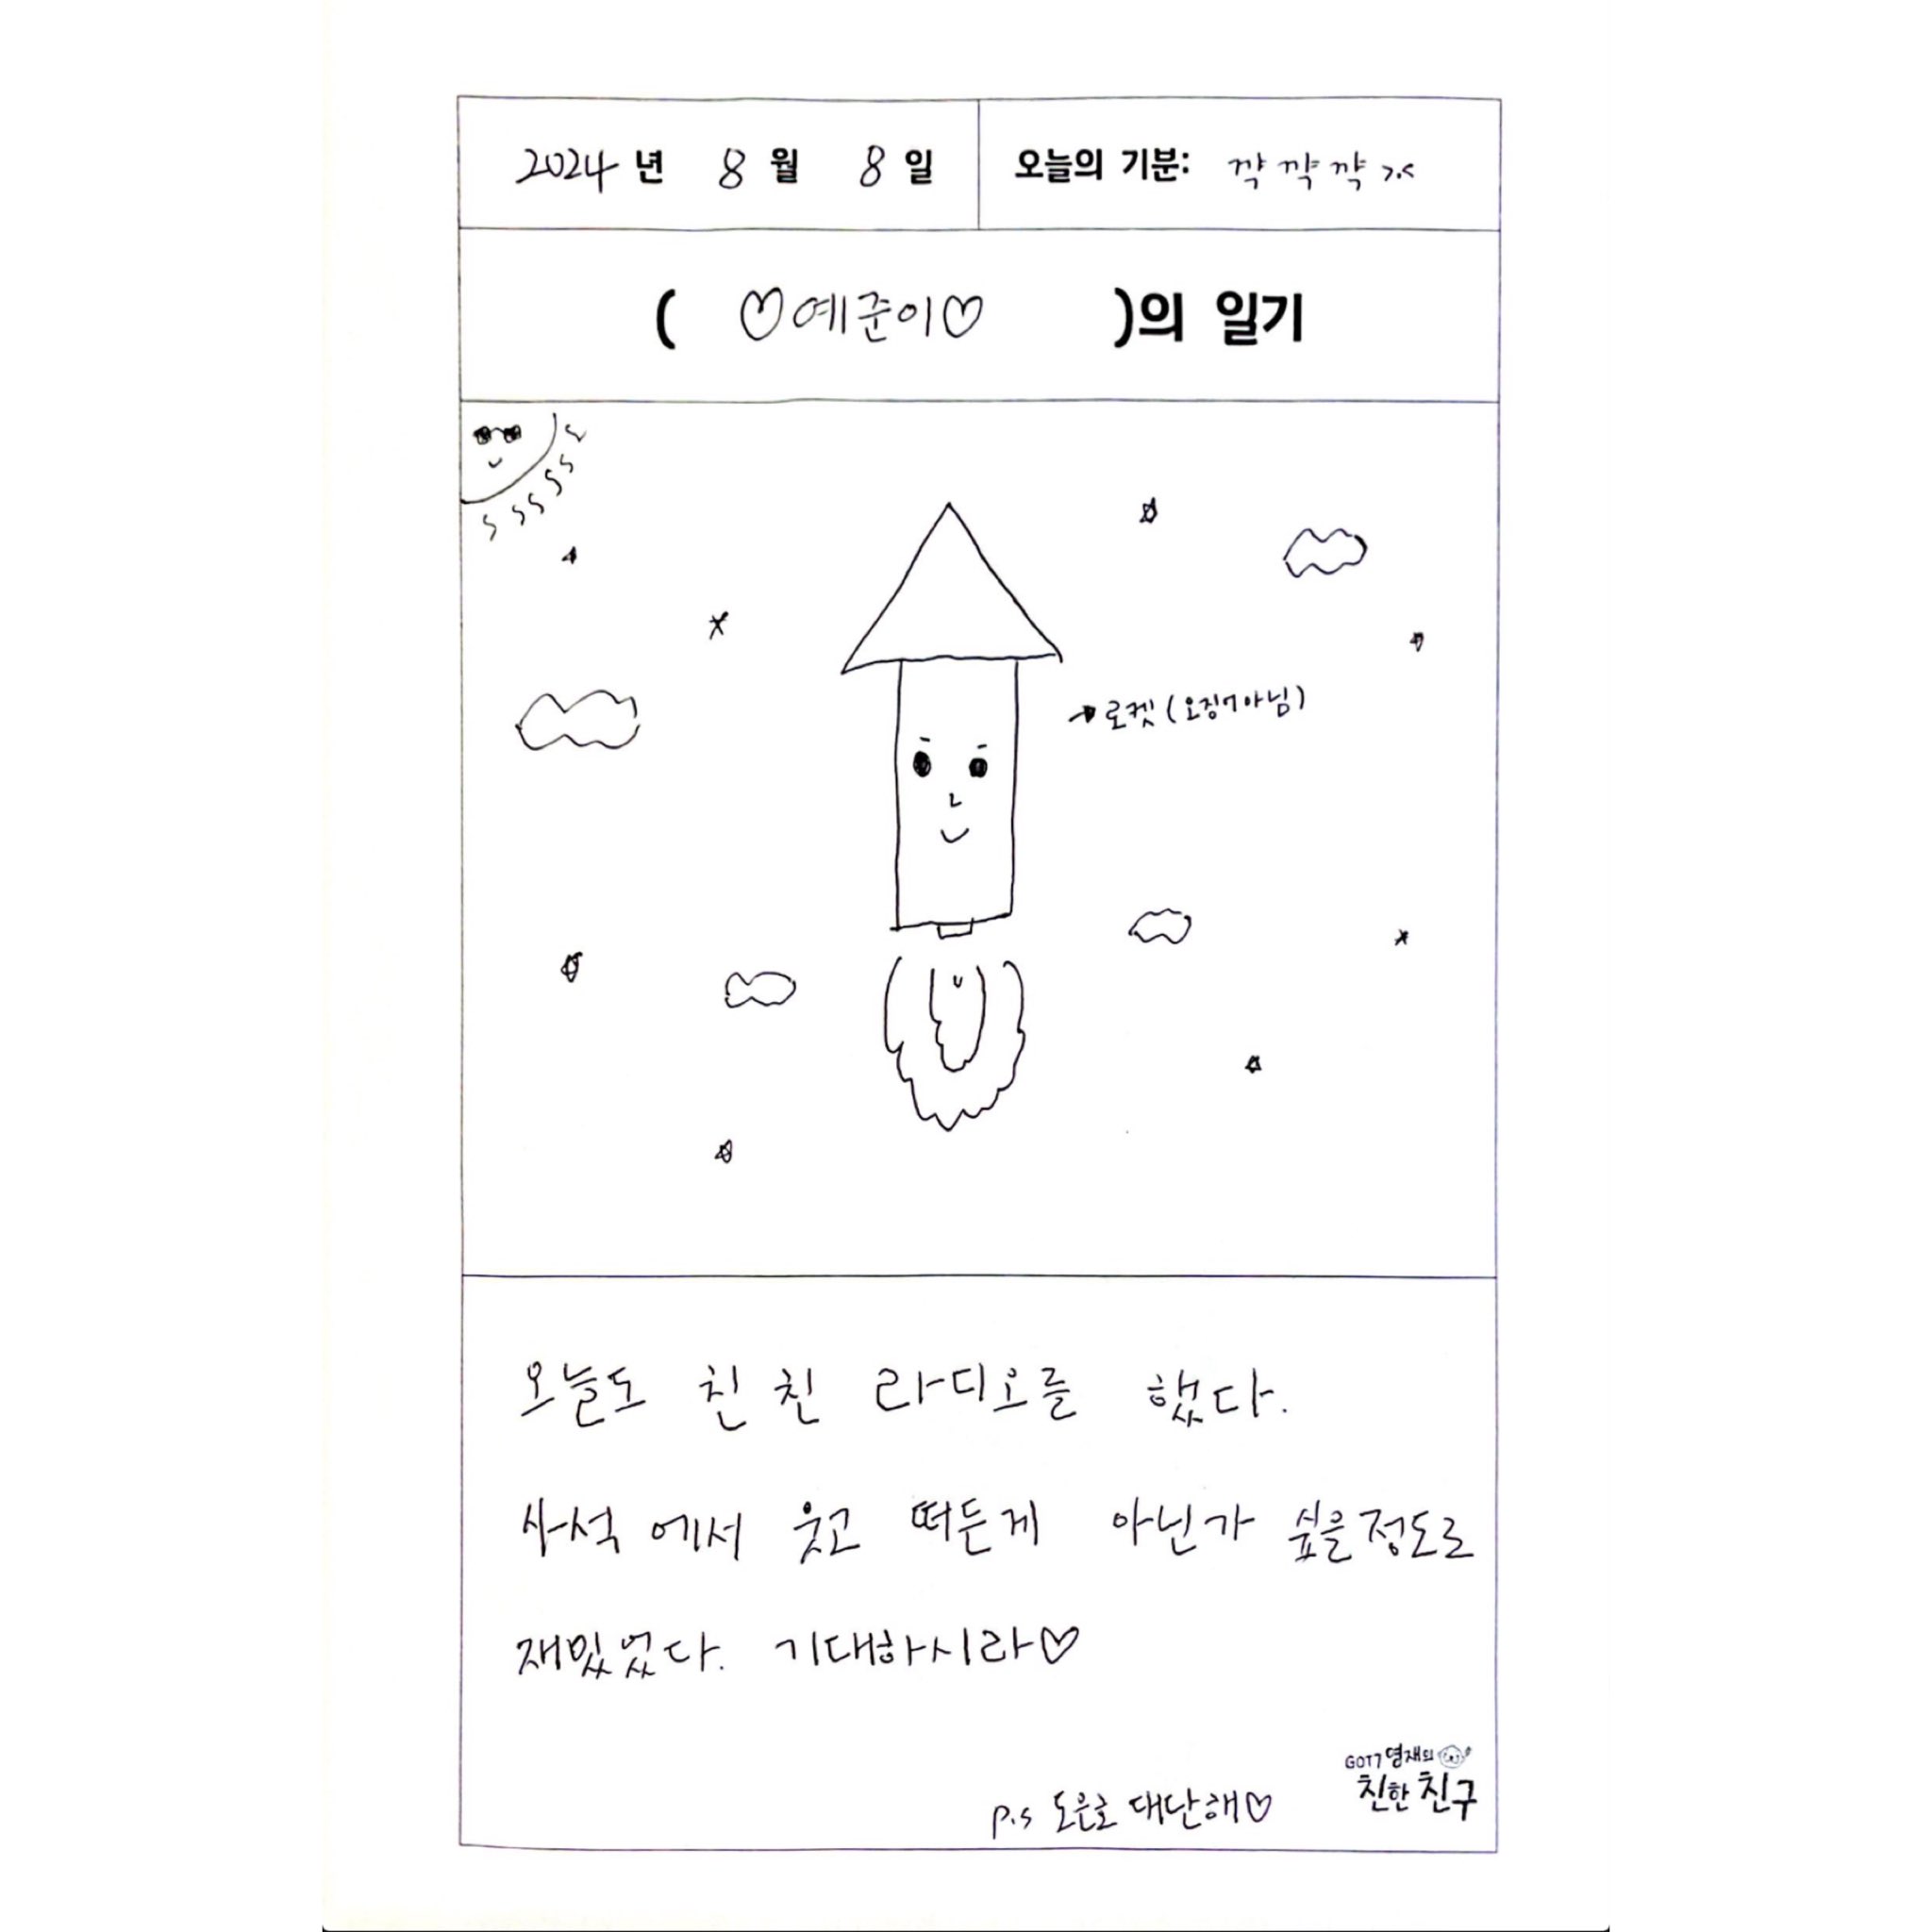 2024년 8월 8일
오늘의 기분: 꺅 꺅 꺅 >.<
( ♡예준이♡ )의 일기
로켓 (오징어아님)
오늘도 친친 라디오를 했다.
사석에서 웃고 떠든게 아닌가 싶을정도로
재밌었다. 기대하시라♡
p.s 도은호 대단해♡
GOT7 영재의
친한친구